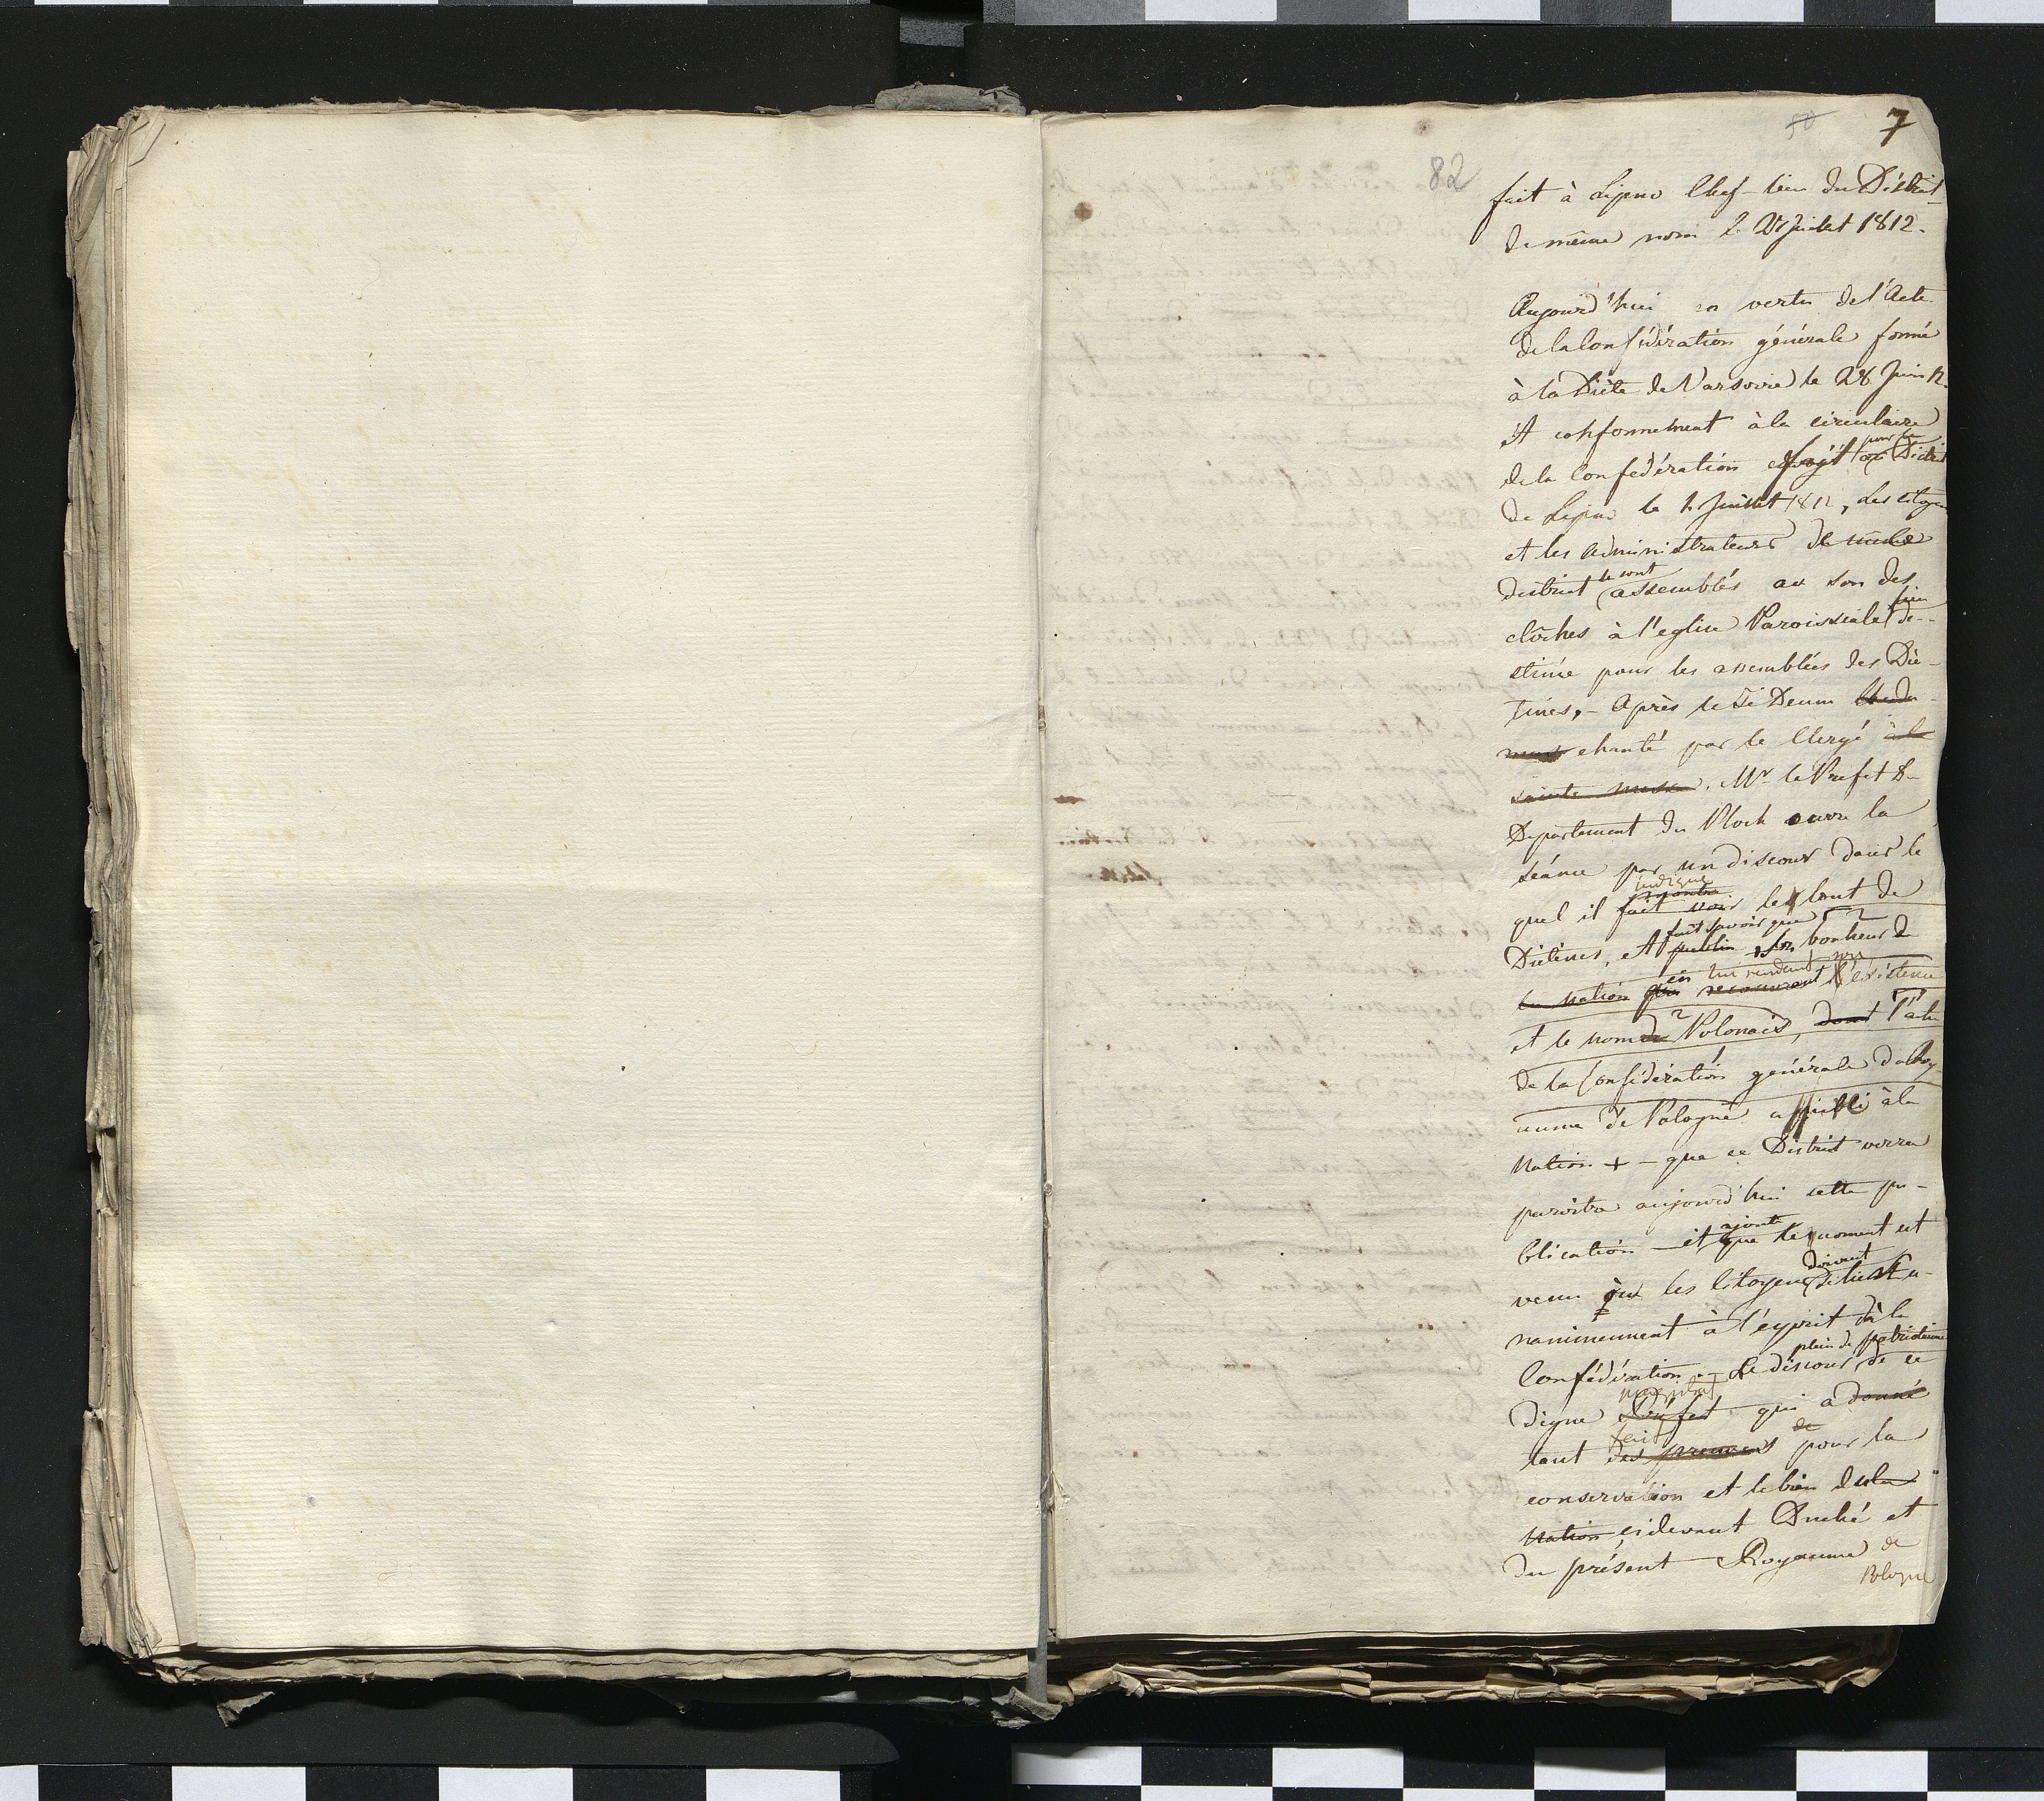 50 7
82
fait à Lipno Chef-lieu du District
de même nom le 21 Juillet 1812.
Aujourd'hui en vertu de l'Acte
de la Confédération générale formé
à la Diète de Varsovie le 28 Juin 12.
et conformement à la circulaire
pour le
de la Confédération District
de Lipno le Juillet 1812, Les citoyens
et les administrateurs
se sont
district assemblés au son des
clôches à l'eglise Paroissiale de-
stinée pour les assemblées des Diè-
tines, - Après le Te Deum
chanté par le Clergé à la
sainte messe. Mr. le Prefet de
Departement du Plock ouvre la
séance par un discour dans le
indique
montre
quel il fait voir les but de
fait savoir que
Diétines, et publie le bonheur de
en lui rendant son
la nation recouvrant l'existence
et le nom de Polonais, dont l'acte
de la Confédération générale du Roy-
aume de Pologne a publié à la
Nation + - que ce District verra
paroitre aujourd'hui cette pu-
ajoute
blication - et que le moment est
doivent
venu que les Citoyens u-
nanimement à l'esprit de la
plein de patriotisme
Confédération. - Le discour de ce
magistrat
digne Préfet qui a donné
fait de
tant des preuves pour la
conservation et le bien de la
Nation, cidevant Duché et
du présent Royaume de
Pologne